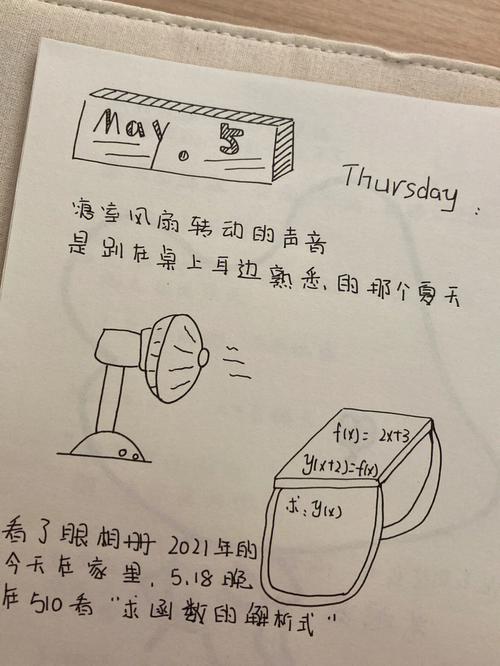 May. 5
Thursday :
寝室风扇转动的声音
是趴在桌上耳边熟悉的那个夏天
f(x)= 2x+3
y(x+2)=f(x)
求:y(x)
看了眼相册 2021年的
今天在家里, 5.18晚
在510看“求函数的解析式”